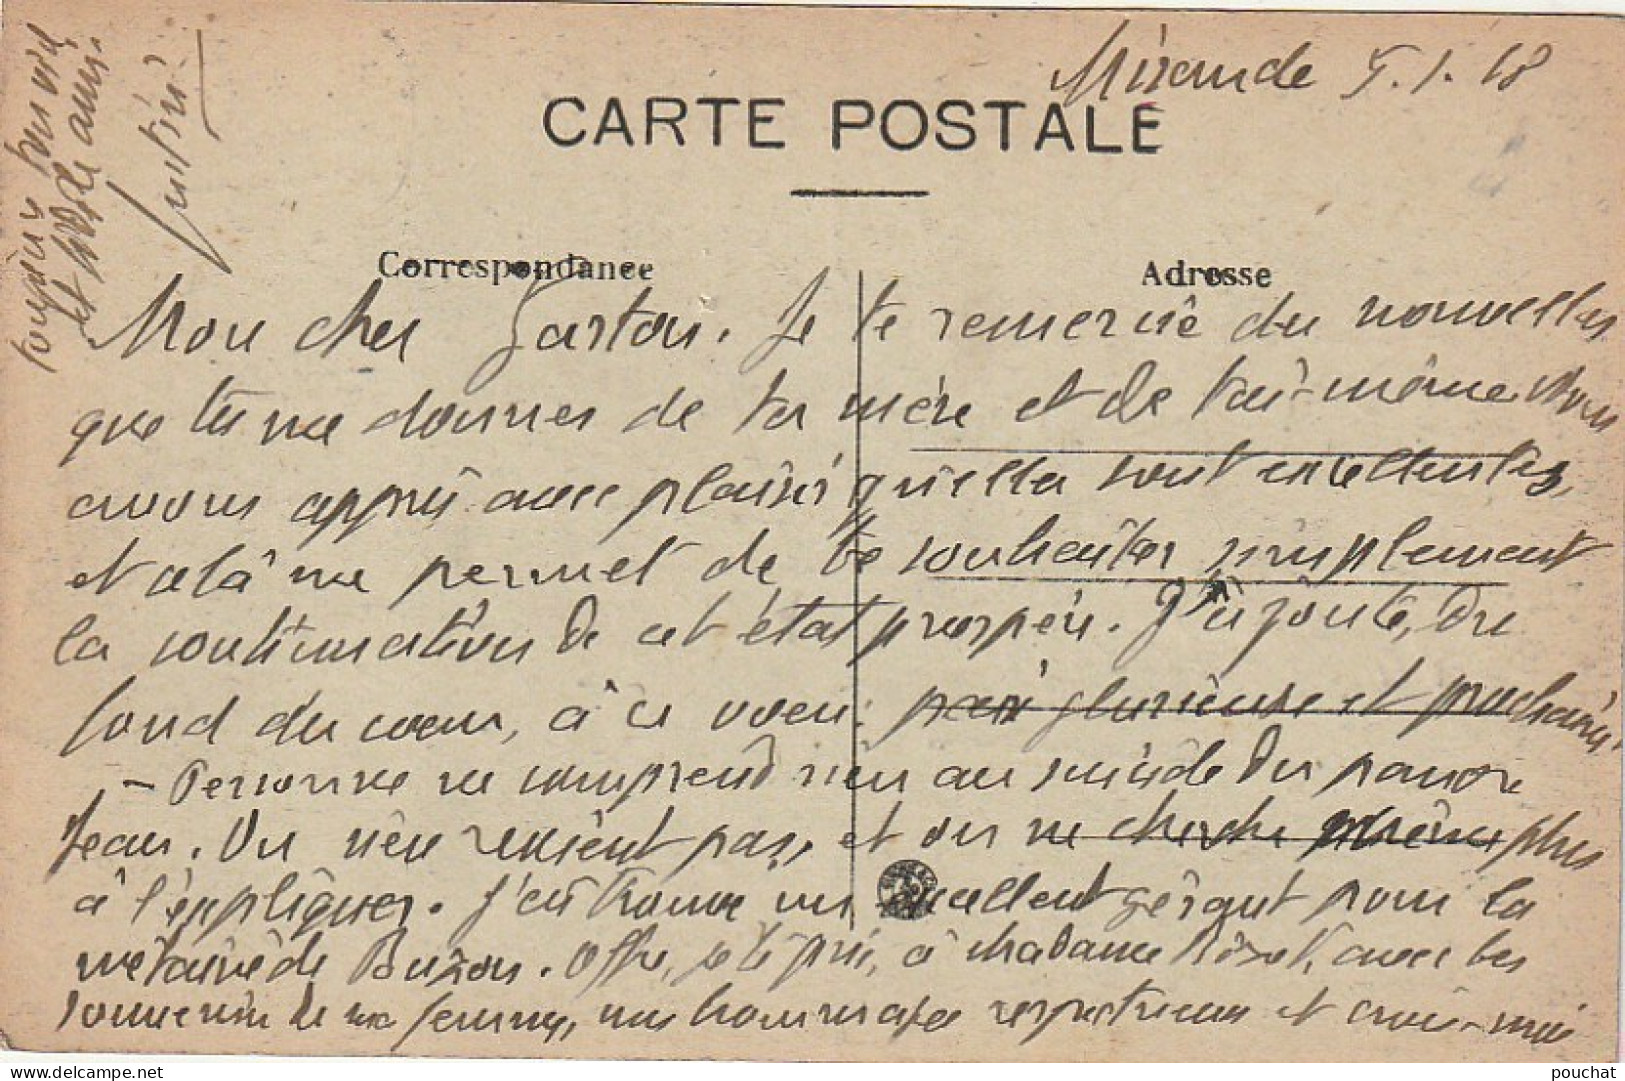 Mirande 5.1.18
CARTE POSTALE
Correspondance
Adresse
Mon cher Gaston. Je te remercie des nouvelles
que tu me donnes de ta mère et de toi-même. Nous
avons appris avec plaisir qu'elles sont excellentes,
et cela me permet de te souhaiter simplement
la continuation de cet état prospère. J'y ajoute, du
fond du cœur, à ce vœu: paix glorieuse et prochaine.
- Personne ne comprend rien au suicide du pauvre
Jean. On n'en revient pas, et on ne cherche même plus
à l'expliquer. J'ai trouvé un excellent gérant pour la
métairie de Buzon. Offre, je te prie, à Madame avec les
souvenirs de ma femme, mes hommages respectueux et crois-moi
toujours ton vieil
et fidèle ami.
pouchat